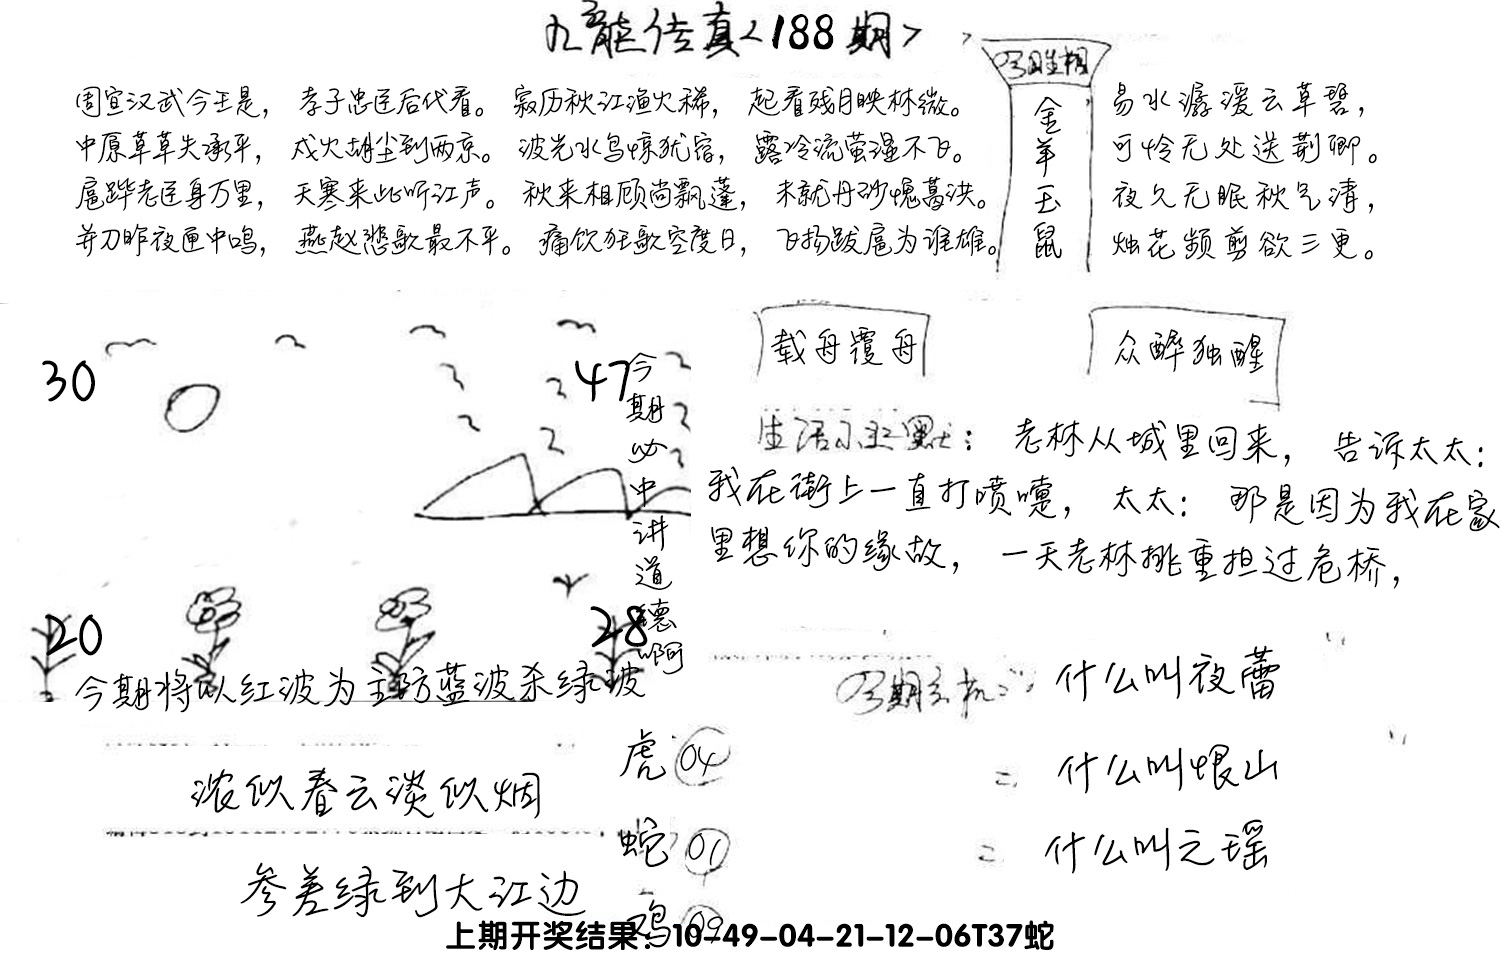 九龙传真<188期>
周宣汉武今王是，孝子忠臣后代看。 寂历秋江渔火稀，起看残月映林微。
中原草草失承平，戍火胡尘到两京。 波光水鸟惊犹宿，露冷流萤湿不飞。
扈跸老臣身万里，天寒来此听江声。 秋来相顾尚飘蓬，未就丹砂愧葛洪。
并刀昨夜匣中鸣，燕赵悲歌最不平。 痛饮狂歌空度日，飞扬跋扈为谁雄。
今期生相
金羊玉鼠
易水潺湲云草碧，
可怜无处送荆卿。
夜久无眠秋气清，
烛花频剪欲三更。
30
47
20
28
今期必中讲道德啊
今期将以红波为主防蓝波杀绿波
载舟覆舟
众醉独醒
生活小幽默：老林从城里回来，告诉太太：
我在街上一直打喷嚏，太太：那是因为我在家
里想你的缘故，一天老林挑重担过危桥，
今期玄机
什么叫夜蕾
什么叫恨山
什么叫之瑶
浓似春云淡似烟
参差绿到大江边
虎 04
蛇 01
鸡 09
上期开奖结果：10-49-04-21-12-06T37蛇